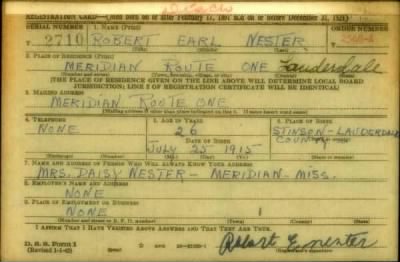 REGISTRATION CARD—(Men born on or after February 17, 1897 and on or before December 31, 1921)
SERIAL NUMBER 1. NAME (Print) ORDER NUMBER
T 2710 ROBERT EARL NESTER
2. PLACE OF RESIDENCE (Print)
MERIDIAN ROUTE ONE Lauderdale
(Number and street) (Town, township, village, or city) (County) (State)
[THE PLACE OF RESIDENCE GIVEN ON THE LINE ABOVE WILL DETERMINE LOCAL BOARD
JURISDICTION; LINE 2 OF REGISTRATION CERTIFICATE WILL BE IDENTICAL]
3. MAILING ADDRESS
MERIDIAN ROUTE ONE
[Mailing address if other than place indicated on line 2. If same insert word same]
4. TELEPHONE 5. AGE IN YEARS 6. PLACE OF BIRTH
NONE 26 STINSON-LAUDERDALE
DATE OF BIRTH COUNTY
JULY 25 1915
7. NAME AND ADDRESS OF PERSON WHO WILL ALWAYS KNOW YOUR ADDRESS
MRS. DAISY NESTER - MERIDIAN - MISS.
8. EMPLOYER'S NAME AND ADDRESS
NONE
9. PLACE OF EMPLOYMENT OR BUSINESS
NONE
(Number and street or R. F. D. number) (Town) (County) (State)
I AFFIRM THAT I HAVE VERIFIED ABOVE ANSWERS AND THAT THEY ARE TRUE.
D. S. S. Form 1
(Revised 1-1-42)
Robert E. nester